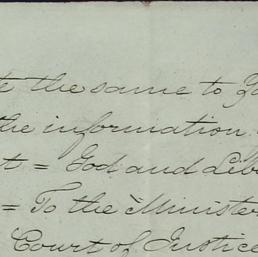 te the same to
the information
t = God and Libe
= To the Minister
Court of Justice